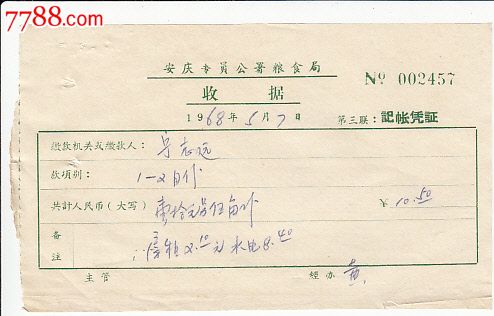 7788.com
安庆专员公署粮食局
№ 002457
收 据
1968年5月7日
第三联：記帐凭証
缴款机关或缴款人：
款项别：1-2月份
共計人民币（大写）壹拾元另伍角 ￥10.50
备注 房租2.10元 水电8.40
主管 經办 黄